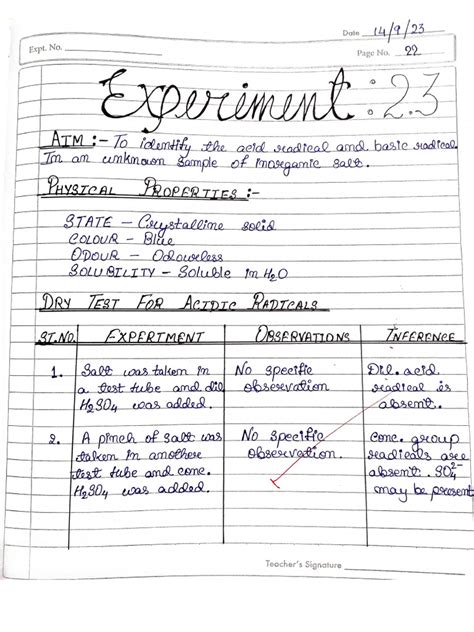 Date 14/9/23
Expt. No.
Page No. 22
Experiment : 2.3
AIM :- To identify the acid radical and basic radical
In an unknown sample of inorganic salt.
PHYSICAL PROPERTIES :-
STATE – Crystalline solid
COLOUR – Blue
ODOUR – Odourless
SOLUBILITY – Soluble in H2O
DRY TEST FOR ACIDIC RADICALS
ST.NO. EXPERTMENT OBSERVATIONS INFERENCE
1. Salt was taken in No specific Dil. acid
a test tube and dil observation radical is
H2SO4 was added. absent.
2. A pinch of salt was No specific Conc. group
taken in another observation. radicals are
test tube and conc. absent. SO4 2-
H2SO4 was added. may be present
Teacher's Signature